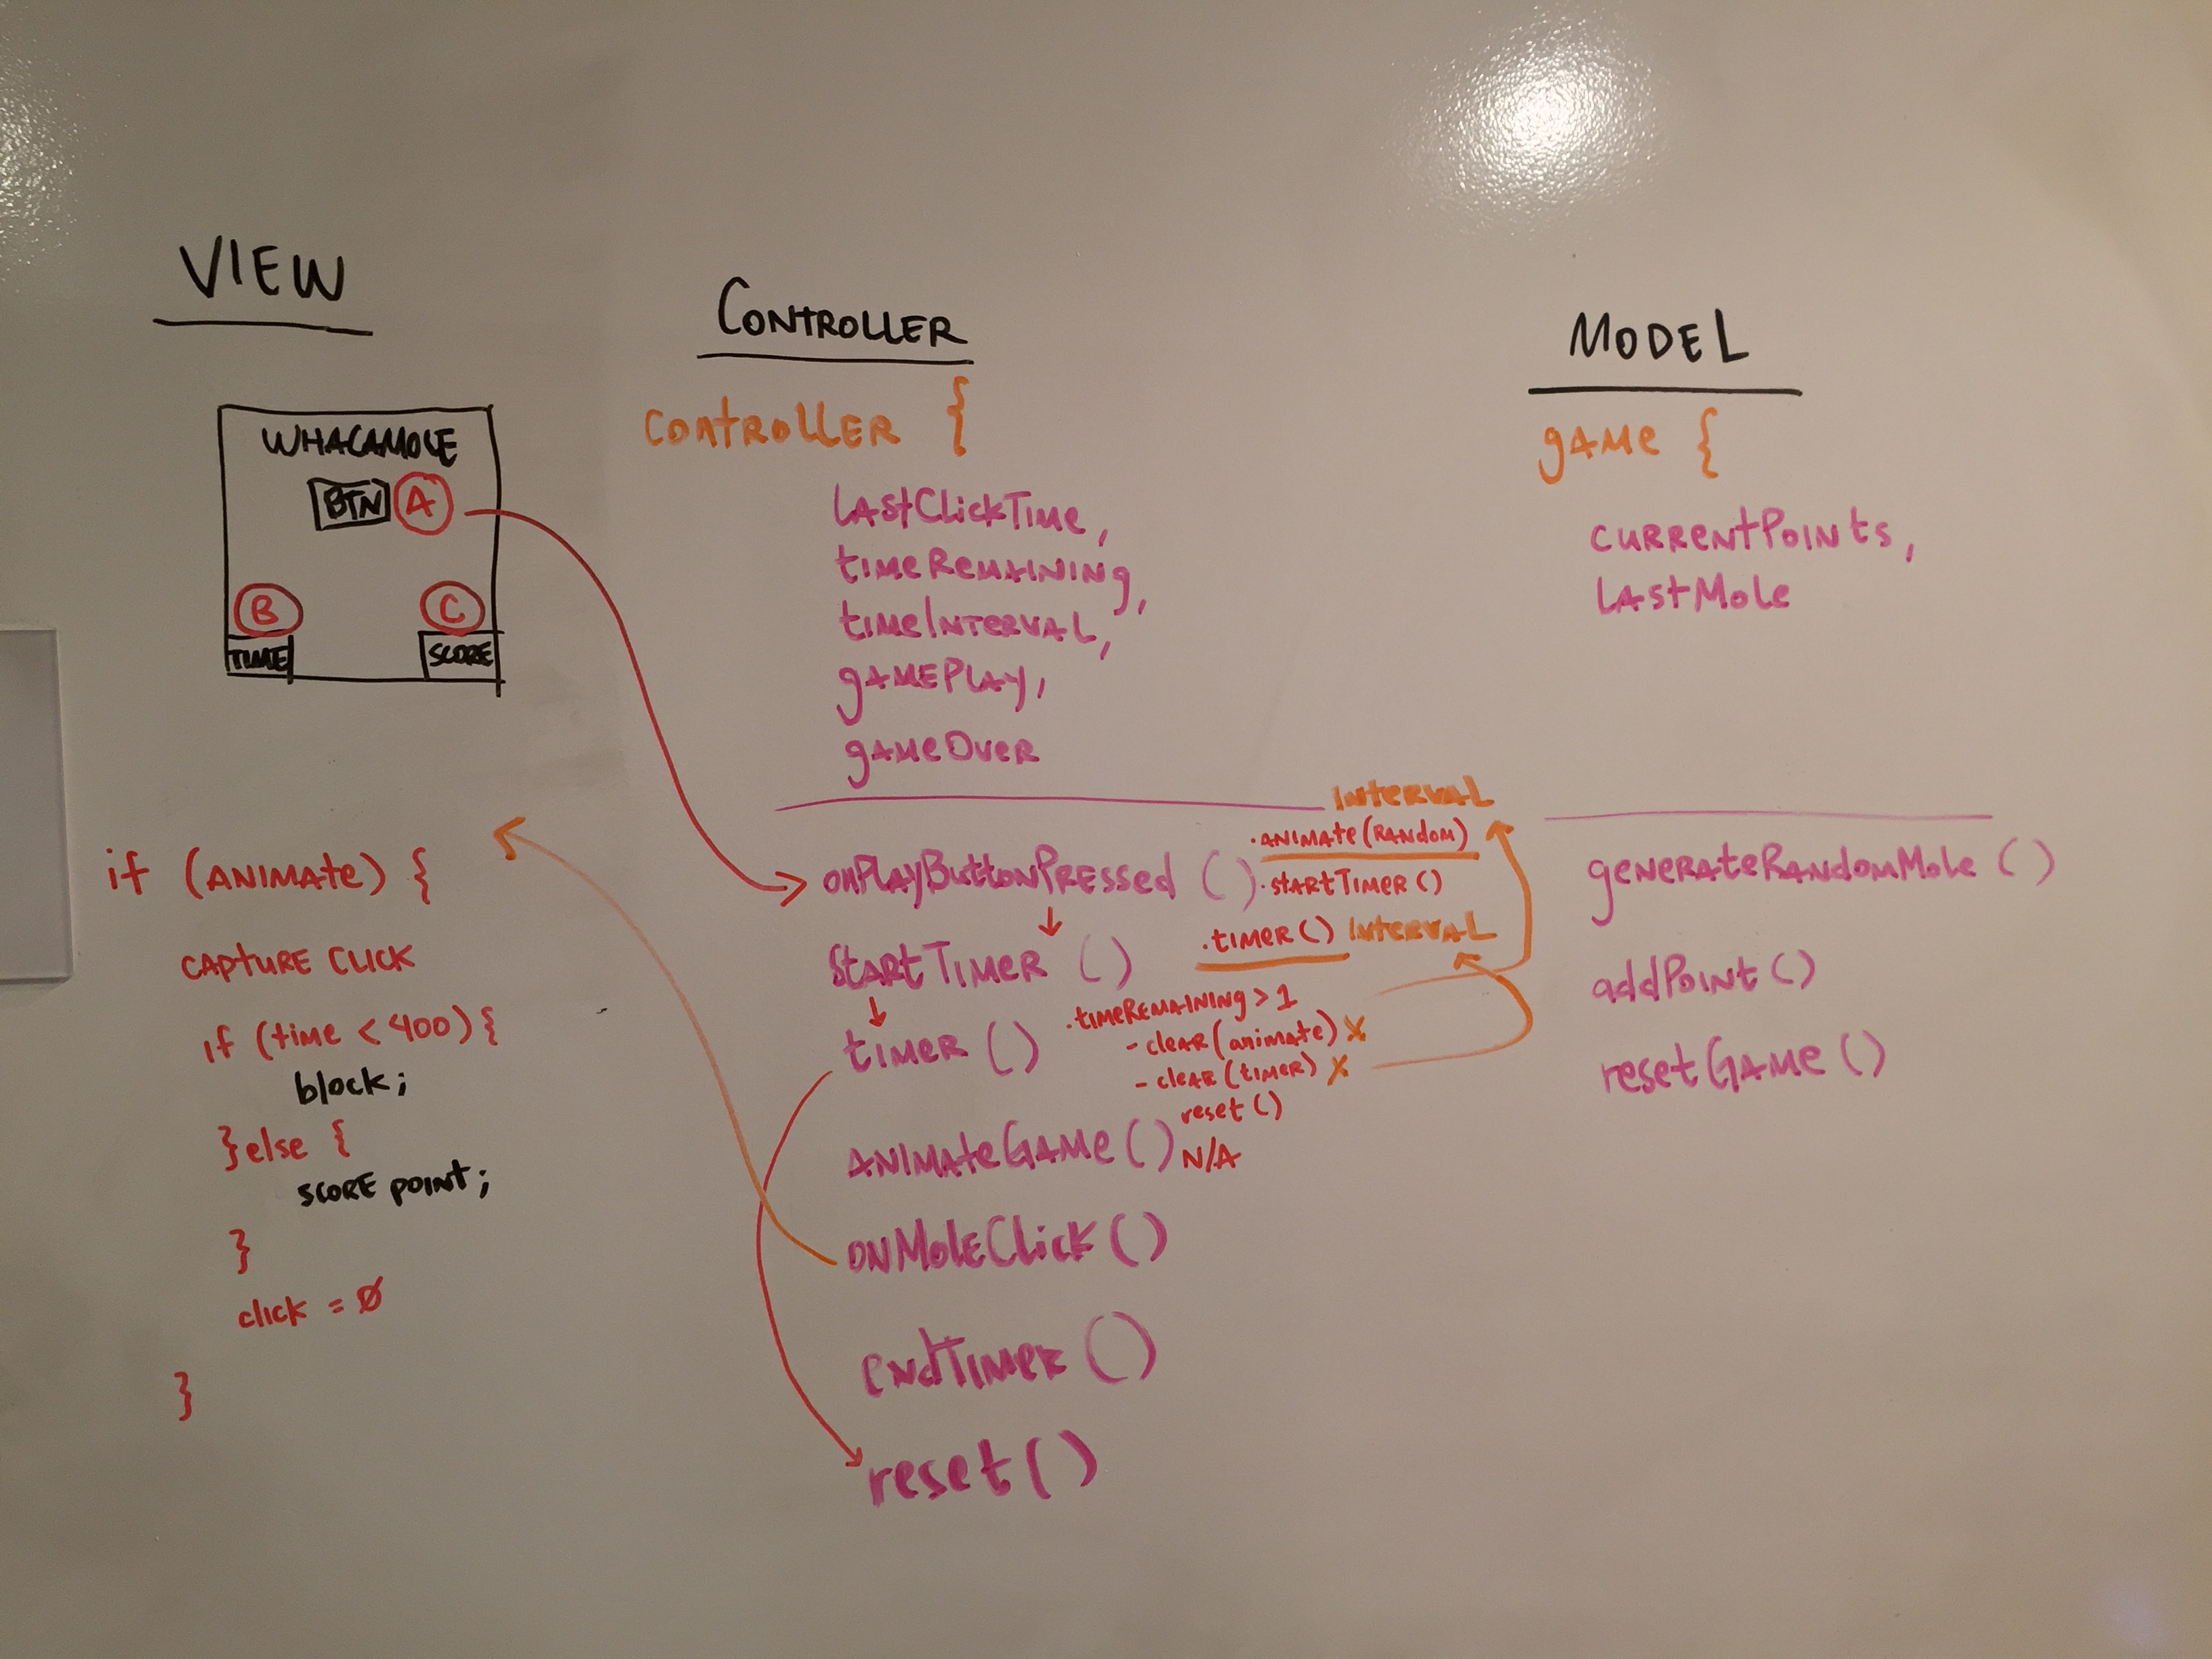 VIEW
WHACAMOLE
BTN A
B
C
TIME
SCORE
if (ANIMAte) {
CAPtURE CLICK
if (time < 400) {
block;
} else {
SCORE POINT;
}
click = Ø
}
CONTROLLER
CONtROLLER {
LAStClickTime,
timeRemaining,
timeINTERVAL,
gAMePlAy,
gAMeOveR
onPlayButtonPRessed ()
INteRVAL
.ANIMAte (RANdoM)
.stARtTimeR ()
StARtTimeR ()
.tiMeR () INteRVAL
timeR ()
.timeRemAiNiNg > 1
- cleAR (animate) X
- cleAR (timeR) X
reset ()
ANIMAteGAMe () N/A
ONMoleClick ()
endTimeR ()
reset ()
MODEL
gAMe {
cuRRentPoints,
LAStMole
geneRAteRANdomMole ()
addPoint ()
resetGAMe ()